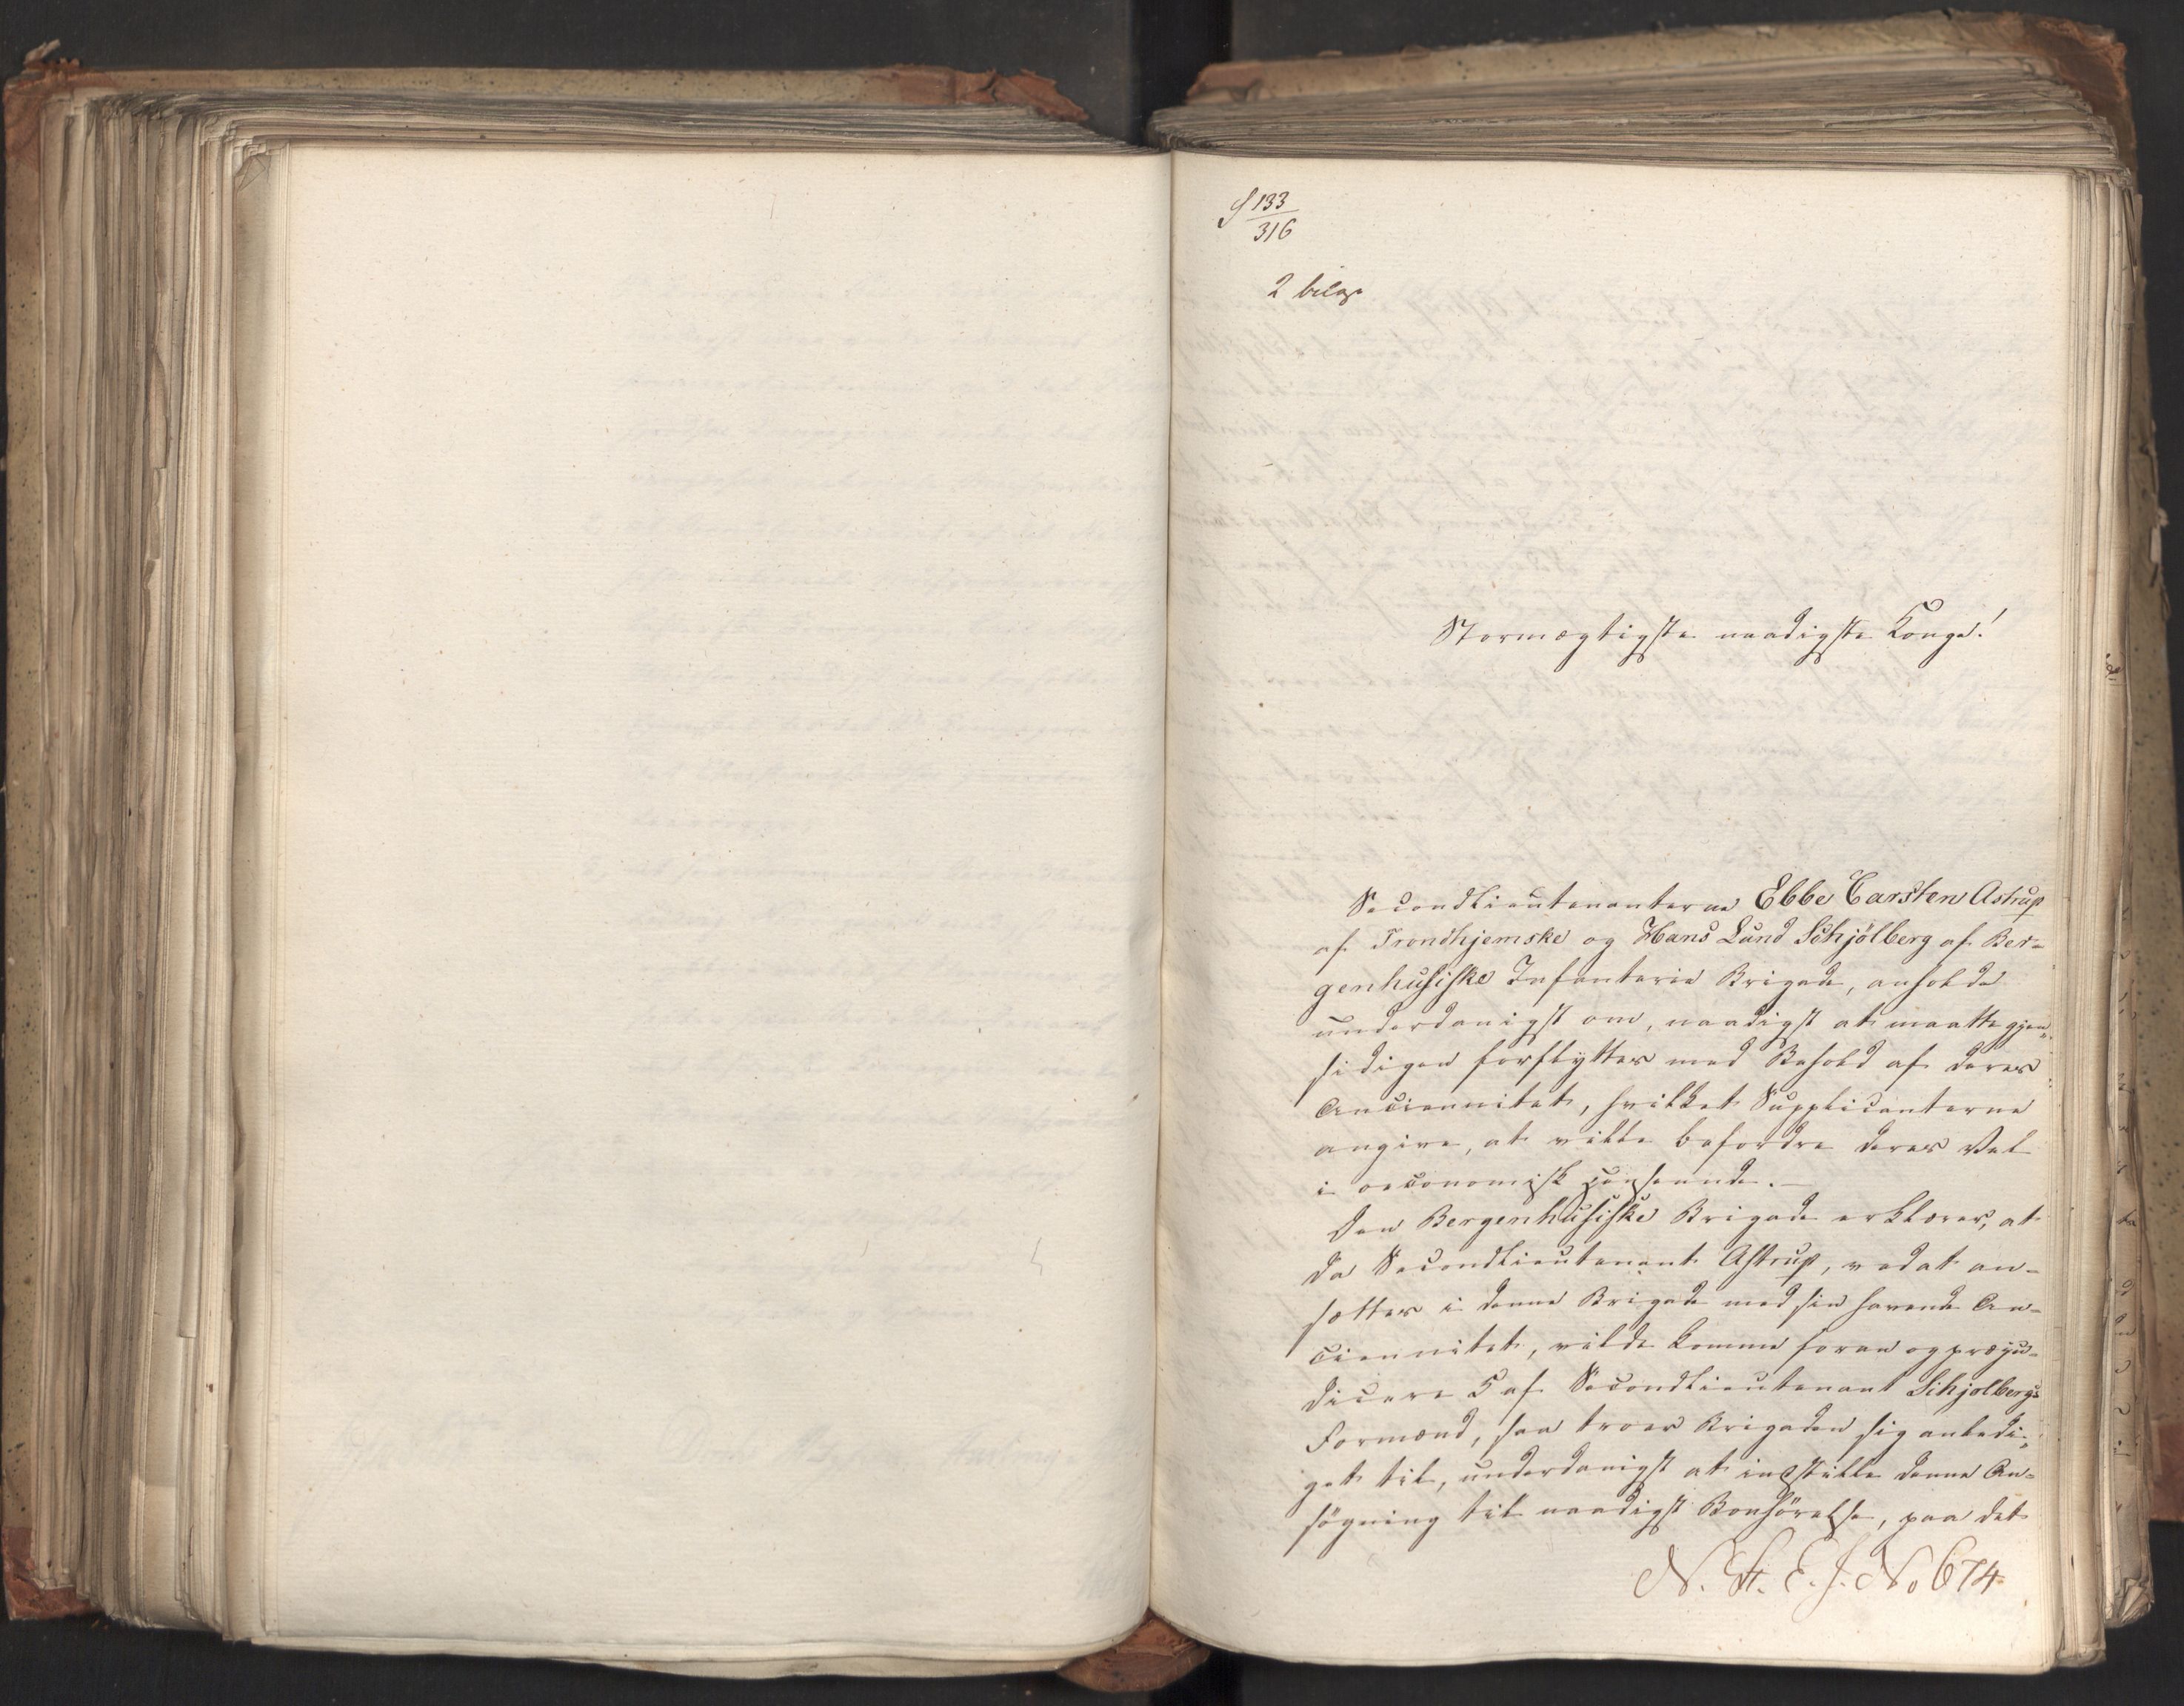 S 133
316
2 bilage
Stormægtigste naadigste Konge!
SecondLieutenanterne Ebbe Carsten Astrup
af Trondhjemske og Hans Lund Schjölberg af Ber-
genhusiske Infanterie Brigade, anholde
underdanigst om, naadigst at maatte gjen-
sidigen forflyttes med Behold af deres
Anciennitet, hvilket Supplicanterne
angive, at ville befordre deres Vel
i oeconomisk Henseende. —
Den Bergenhusiske Brigade erklærer, at
da Secondlieutenant Astrup, ved at an-
sættes i denne Brigade med sin havende An-
ciennitet, vilde komme foran og præju-
dicere 5 af Secondlieutenant Schjølbergs
Formænd, saa troer Brigaden sig anledi-
get til, underdanigst at indstille denne An-
søgning til naadigst Bønhörelse, paa det
N. St. E. J. No 674